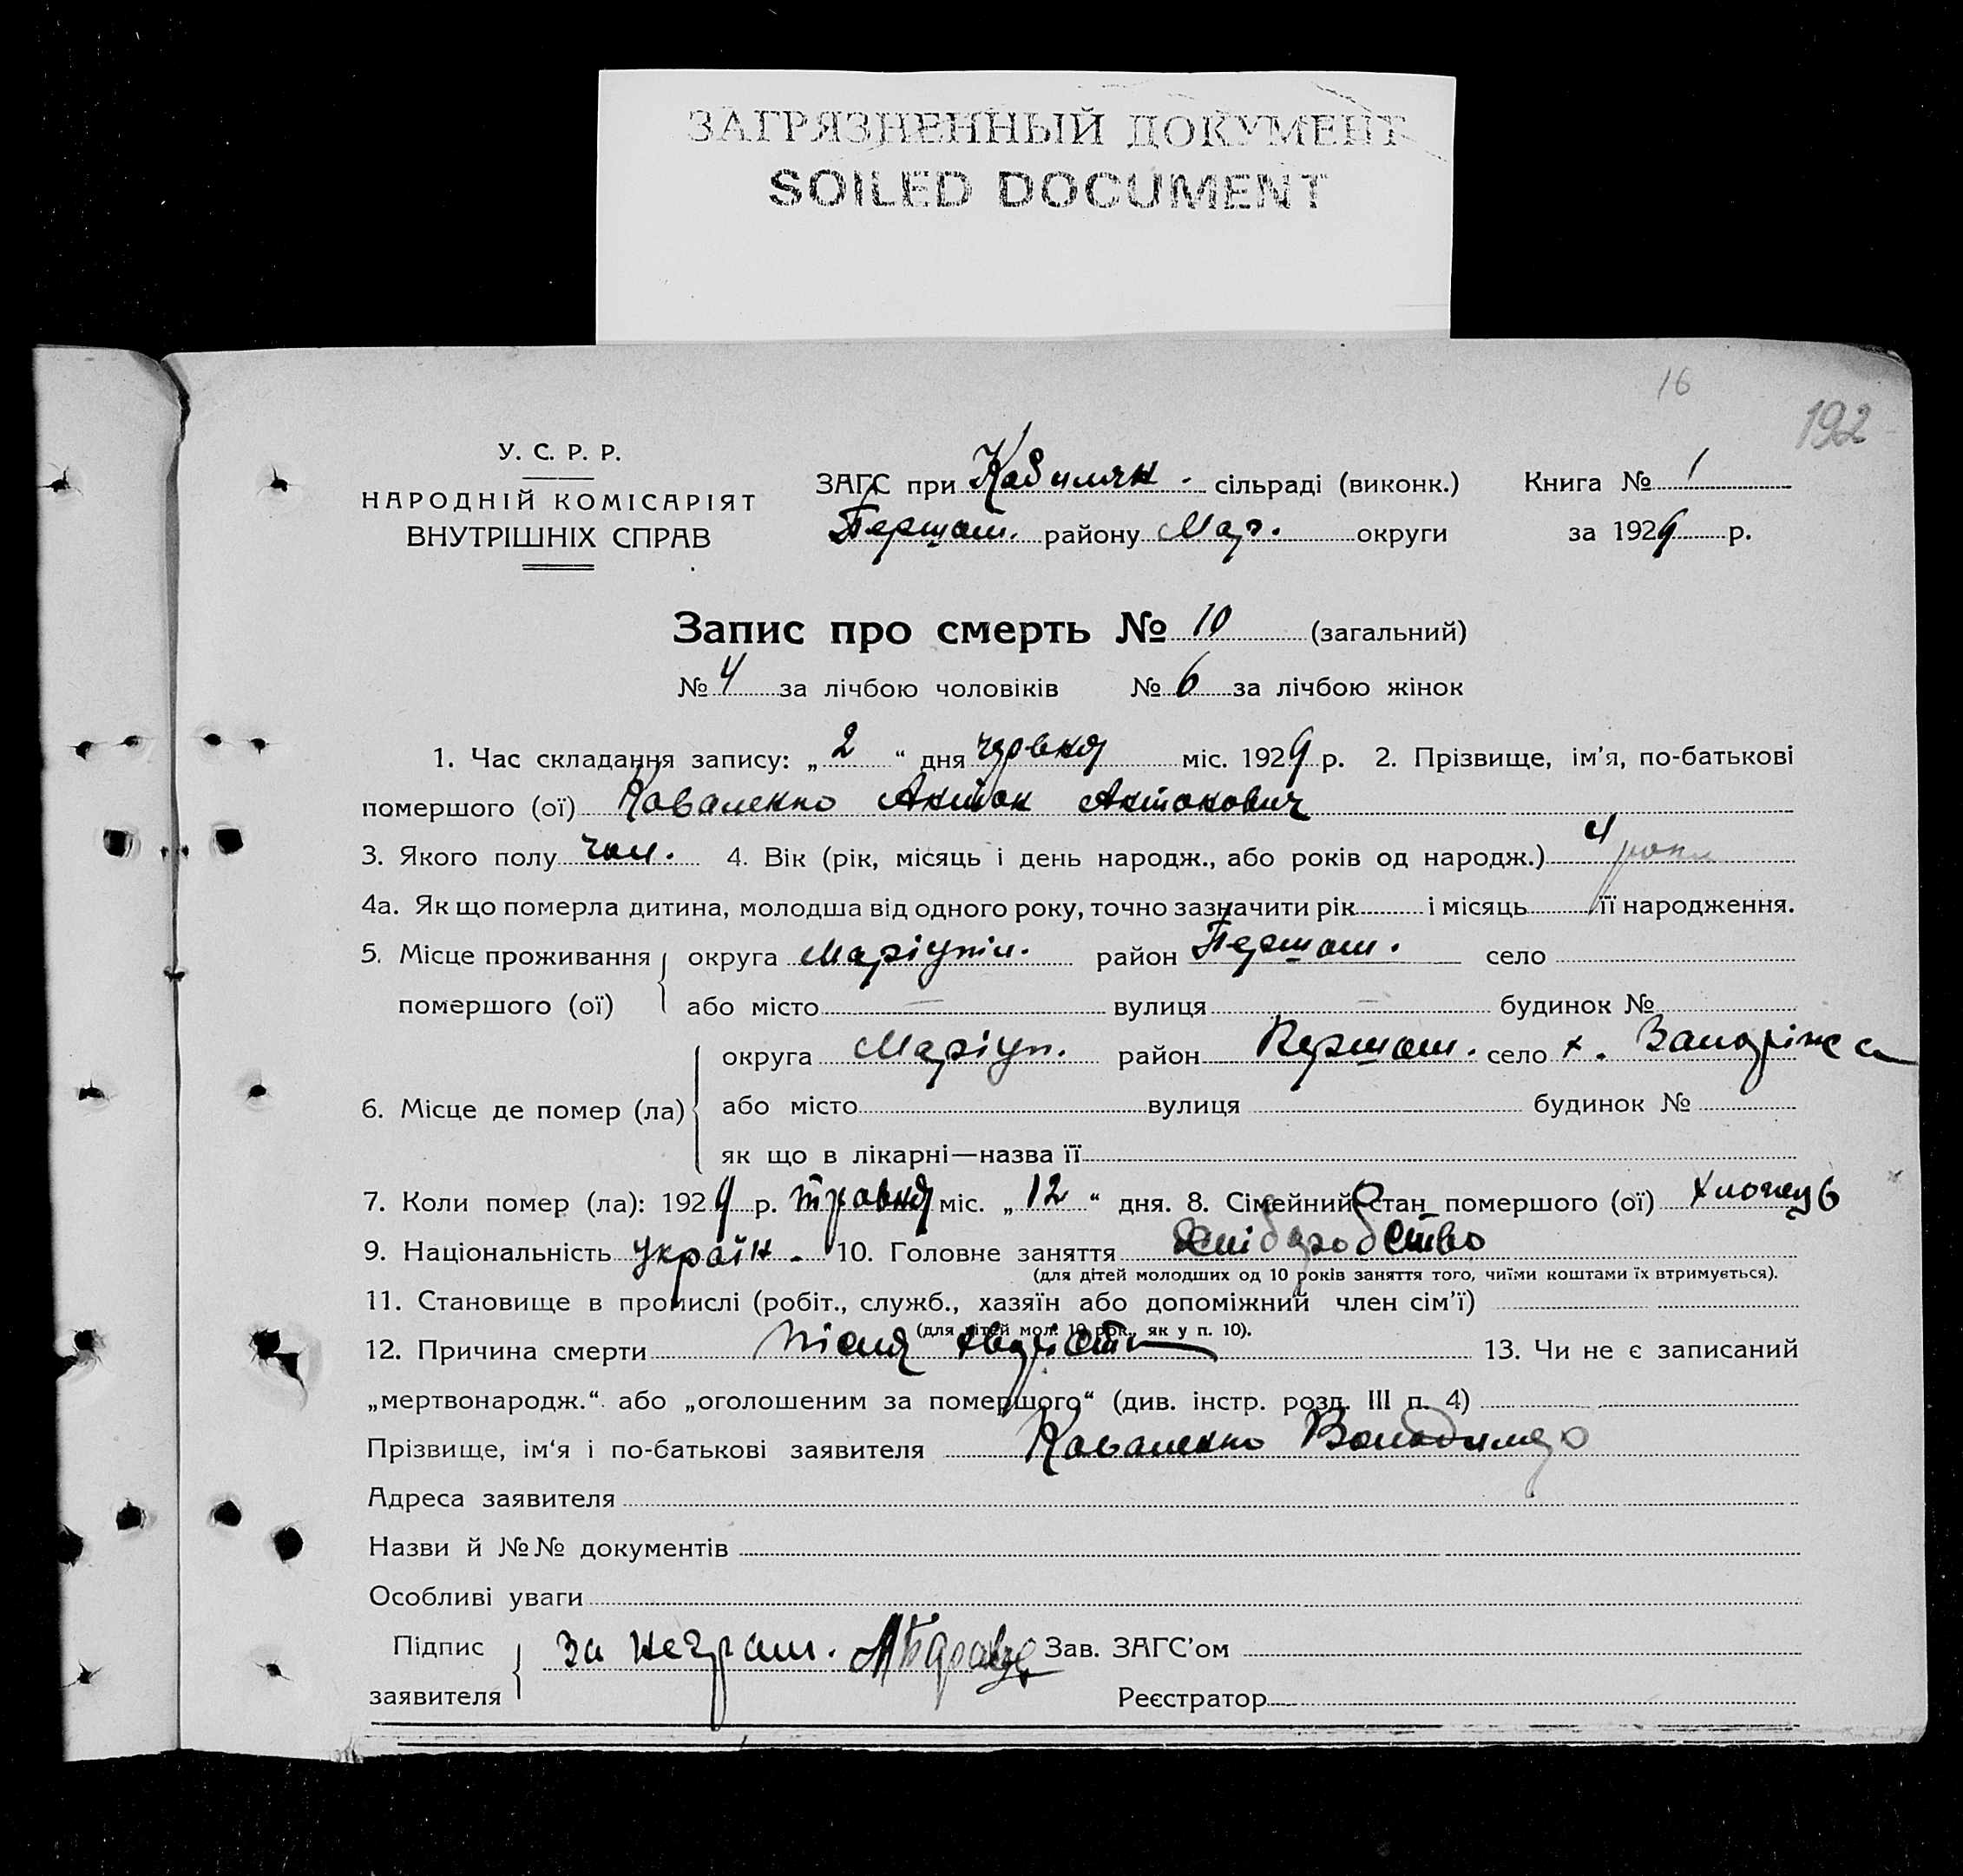 ЗАГРЯЗНЕННЫЙ ДОКУМЕНТ
SOILED DOCUMENT
16
192
У. С. Р. Р.
НАРОДНІЙ КОМІСАРІЯТ
ВНУТРІШНІХ СПРАВ
ЗАГС при сільраді (виконк.)
Першот. району Мар. округи
Книга № 1
за 1929 р.
Запис про смерть № 10 (загальний)
№ 4 за лічбою чоловіків № 6 за лічбою жінок
1. Час складання запису: „ 2 “ дня червня міс. 1929 р. 2. Прізвище, ім'я, по-батькові
помершого (ої) Коваленко Антон Антонович
3. Якого полу чол. 4. Вік (рік, місяць і день народж., або років од народж.) 4 роки
4а. Як що померла дитина, молодша від одного року, точно зазначити рік і місяць її народження.
5. Місце проживання округа Маріупіл. район Першот. село
помершого (ої) або місто — вулиця — будинок №
округа Маріуп. район Першот. село х.
6. Місце де помер (ла) або місто вулиця будинок №
як що в лікарні—назва її
7. Коли помер (ла): 1929 р. травня міс. „ 12 “ дня. 8. Сімейний стан помершого (ої) хлопець
9. Національність україн. 10. Головне заняття Хліборобство
(для дітей молодших од 10 років заняття того, чиїми коштами їх втримується).
11. Становище в промислі (робіт., служб., хазяїн або допоміжний член сім'ї)
(для дітей мол. 10 рок., як у п. 10).
12. Причина смерти після 13. Чи не є записаний
„мертвонародж.“ або „оголошеним за помершого“ (див. інстр. розд. III п. 4)
Прізвище, ім'я і по-батькові заявителя Коваленко Володимер
Адреса заявителя
Назви й №№ документів
Особливі уваги
Підпис за неграм. Зав. ЗАГС'ом
заявителя Реєстратор